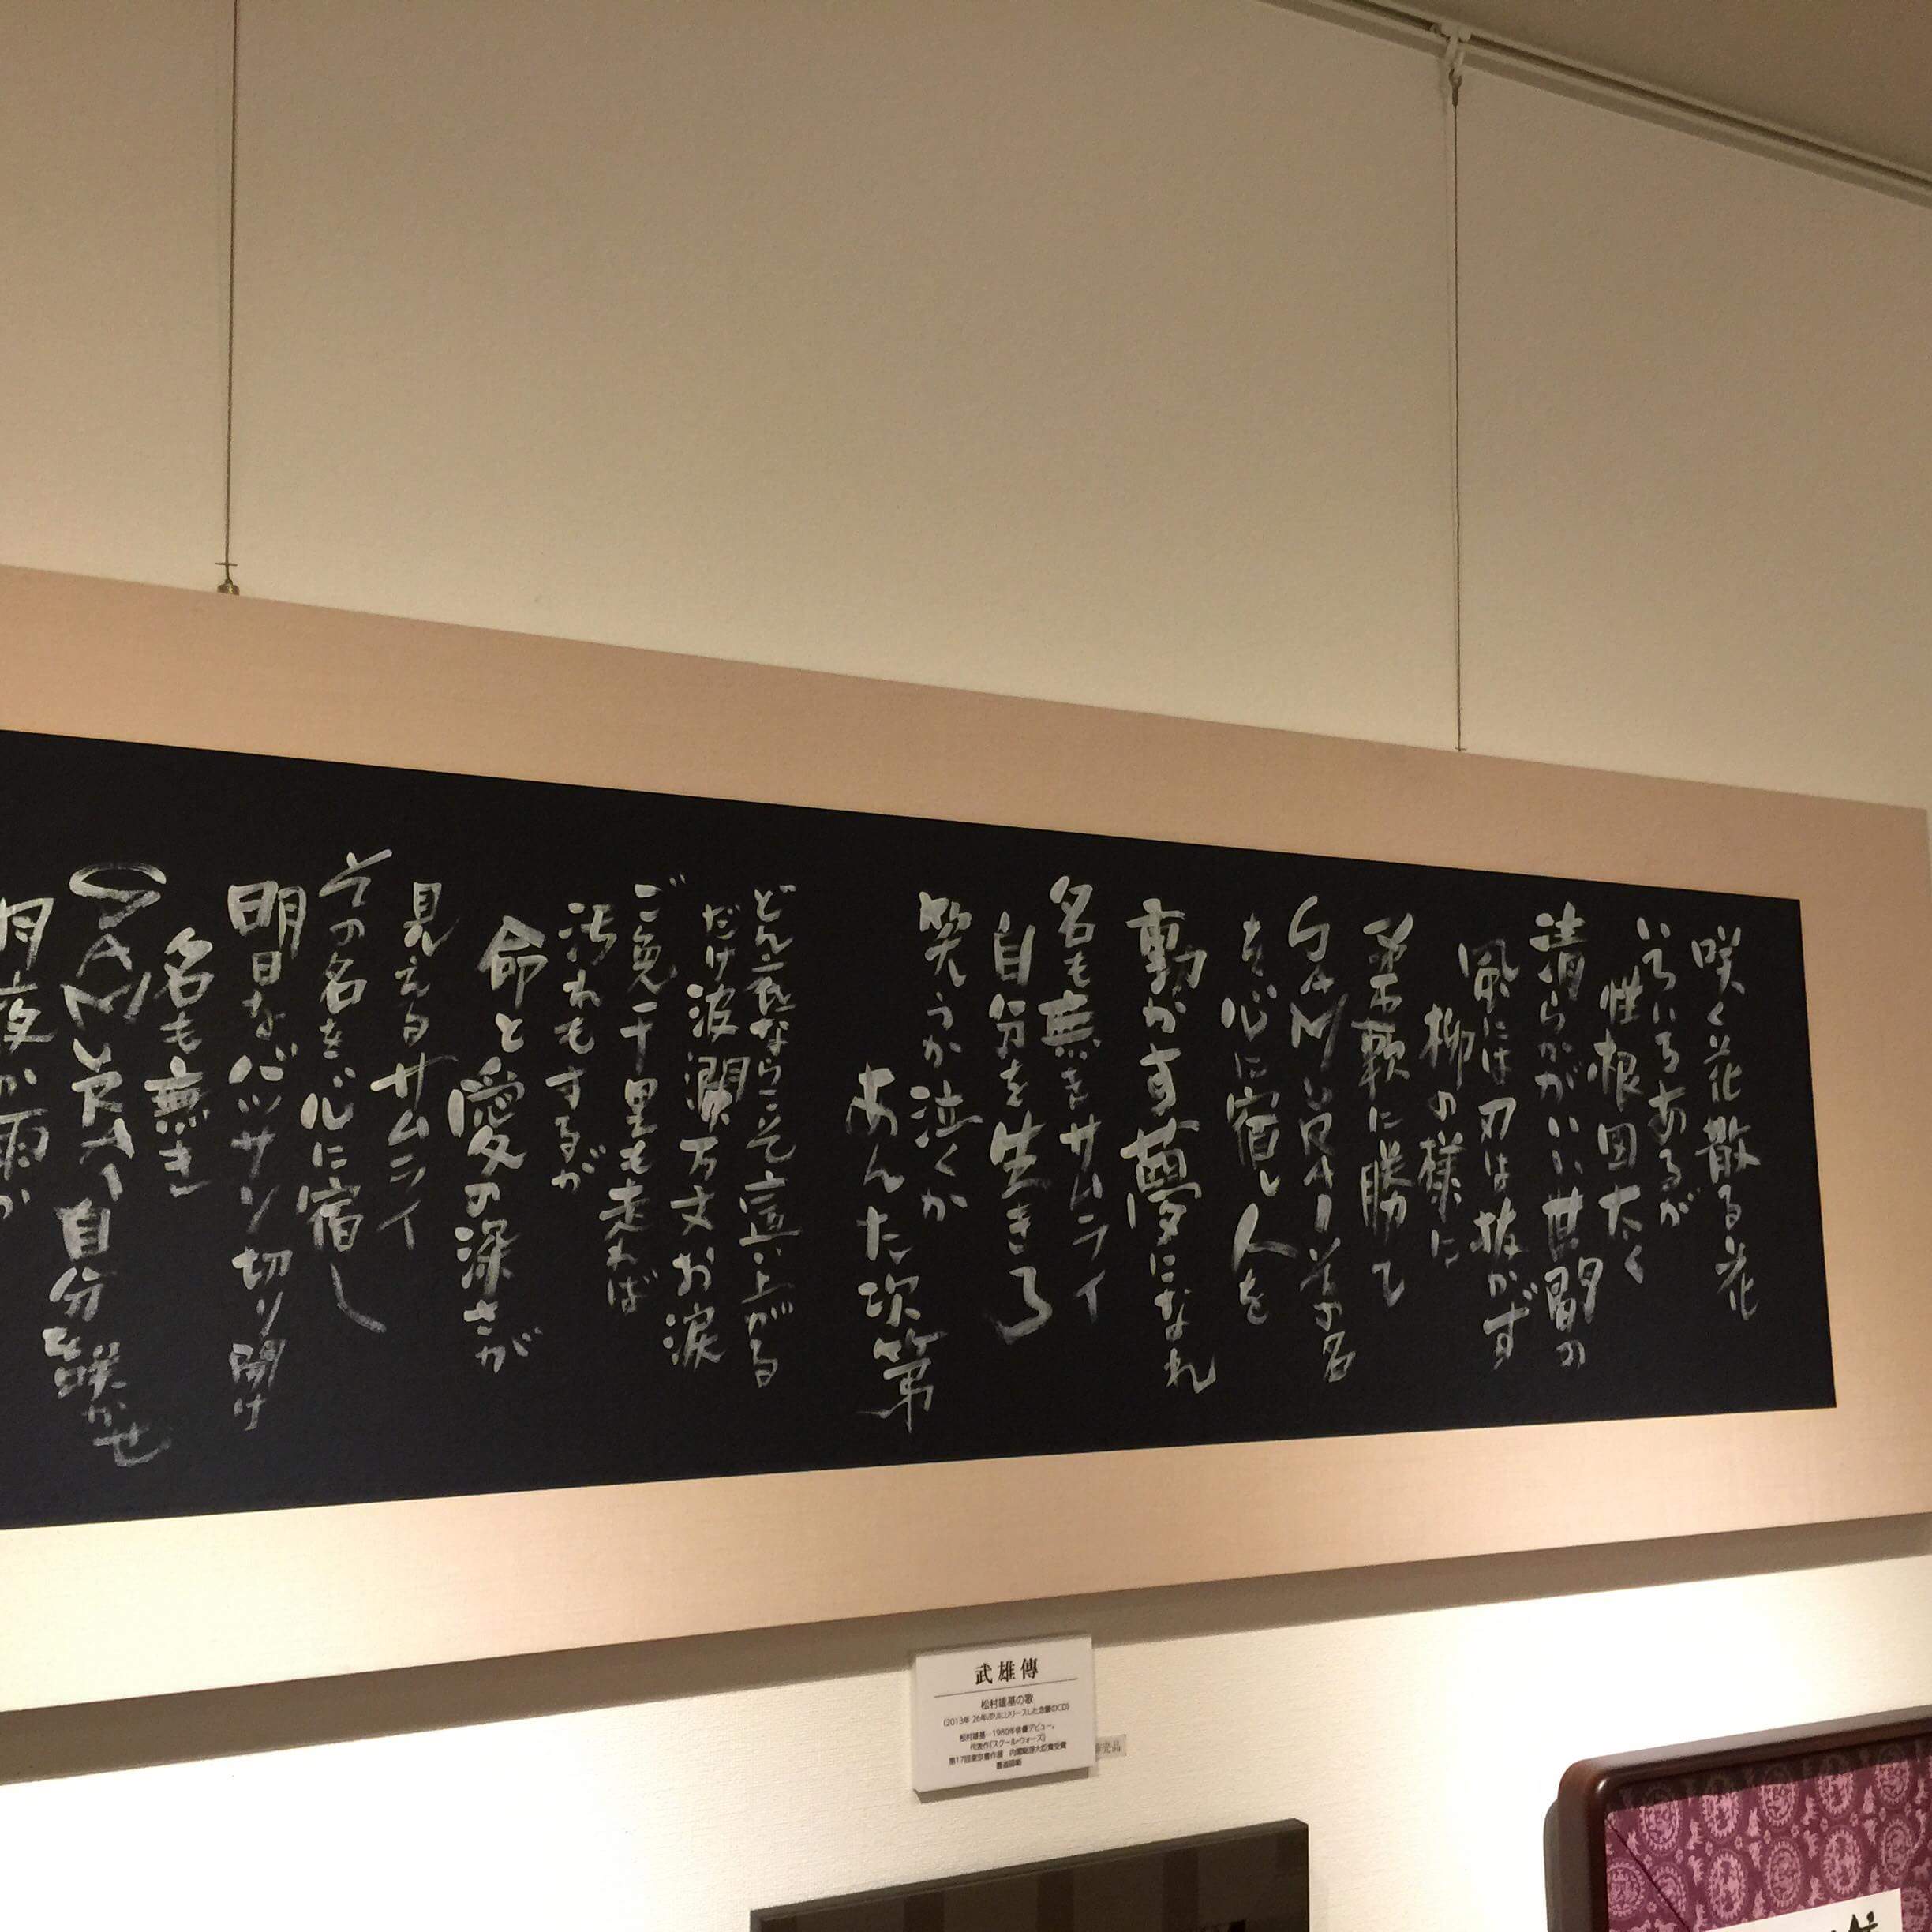 咲く花散る花
いろいろあるが
性根図太く
清らかがいい世間の
風には刃は抜かず
柳の様に
柔軟に勝て
SAMURAIその名
を心に宿し人を
動かす夢になれ
名も無きサムライ
自分を生きろ
笑うか泣くか
あんた次第
どん底ならこそ這い上がる
だけ波瀾万丈お涙
ご免千里も走れば
汚れもするが
命と愛の深さが
見えるサムライ
その名を心に宿し
明日をバッサリ切り開け
名も無き
SAMURAI自分咲かせ
月夜か雨か
武雄傳
松村雄基の歌
(2013年 26年ぶりにリリースした念願のCD)
松村雄基…1980年俳優デビュー。
代表作「スクール・ウォーズ」
第17回東京書作展 内閣総理大臣賞受賞
非売品